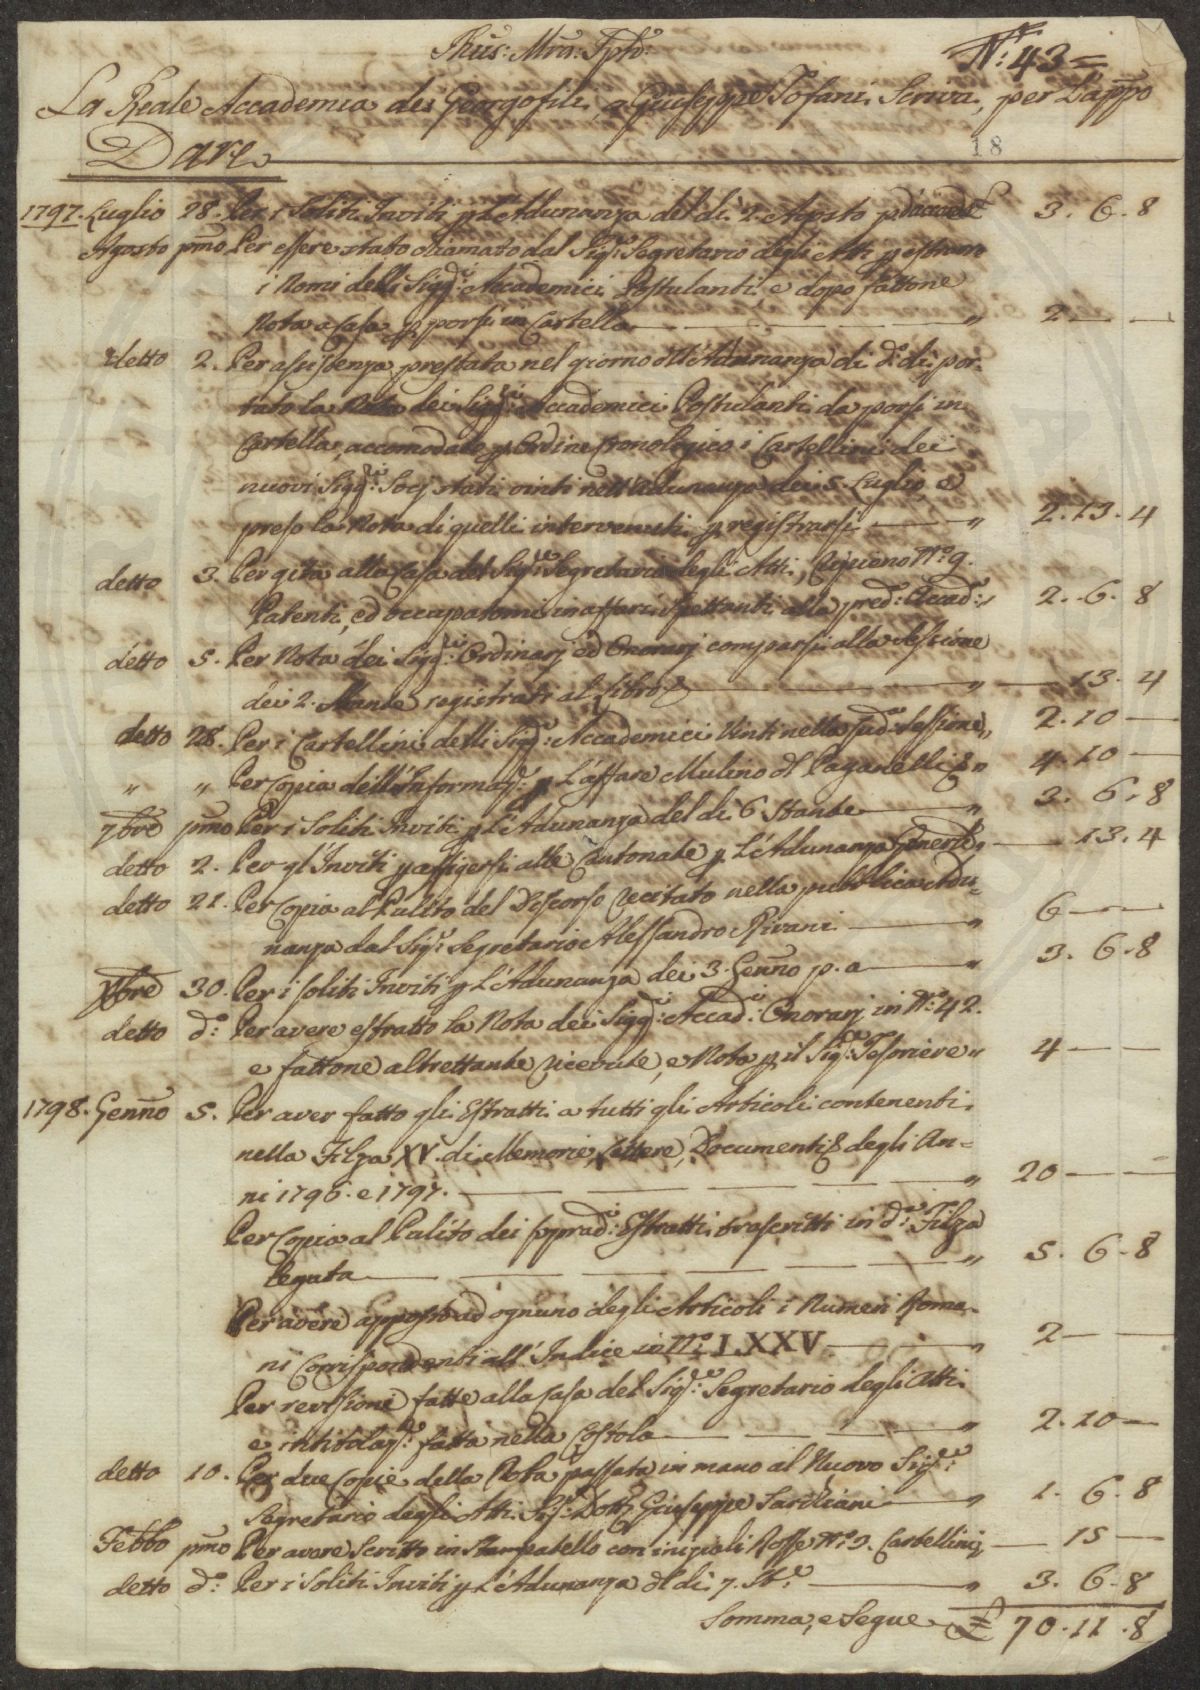 Jhus: Mra: Jph:
N.° 43 =
La Reale Accademia dei Georgofili, a Giuseppe Tofani Scriva, per L'app.o
18
Dare
1797. Luglio 28. Per i Soliti Inviti p L'Adunanza del dì 2. Agosto p. d'accordo 3. 6. 8
Agosto pmo Per essere stato chiamato dal Sig.re Segretario degli Atti p estrarre
i Nomi delli Sigg.ri Accademici Postulanti, e dopo fattone
Nota a Casa p porsi in Cartella — " 2 — —
detto 2. Per assistenza prestata nel giorno dell'Adunanza di d.° dì; por-
tato la Nota dei Sigg.ri Accademici Postulanti da porsi in
Cartella, accomodato p Ordine Cronologico i Cartellini dei
nuovi Sigg.ri Socj stati vinti nell'Adunanza dei 5. Luglio, e
preso la Nota di quelli intervenuti p registrarsi — " 2. 13. 4
detto 3. Per gita alla Casa del Sig.re Segretario degli Atti, Ripieno N.° 9.
Patenti, ed occupatomi in affari spettanti alla pred.a Accad.a 2. 6. 8
detto 5. Per Nota dei Sigg.ri Ordinarj ed Onorarj comparsi alla Sessione
dei 2. Stante registrati al Libro — " — 13. 4
detto 28. Per i Cartellini delli Sigg.ri Accademici Vinti nella sud.a Sessione " 2. 10 —
" " Per Copia dell'Informaz.e p L'affare Mulino dl Paganelli & " 4. 10 —
7bre pmo Per i Soliti Inviti p L'Adunanza del dì 6 Stante — " 3. 6. 8
detto 2. Per gl'Inviti p affigersi alle Cantonate p L'Adunanza Generale " — 13. 4
detto 21. Per Copia al Pulito del Discorso recitato nella pubblica Adu-
nanza dal Sig.re Segretario Alessandro Rivani — " 6 — —
Xbre 30. Per i soliti Inviti p L'Adunanza dei 3. Genno p. a — " 3. 6. 8
detto d.° Per avere estratto la Nota dei Sigg.ri Accad.ci Onorarj in N.° 42.
e fattone altrettante ricevute, e Nota p il Sig.re Tesoriere " 4 — —
1798. Genno 5. Per aver fatto gli Estratti a tutti gli Articoli contenenti
nella Filza XV. di Memorie, Lettere, Documenti & degli An-
ni 1796. e 1797. — " 20 — —
Per Copia al Pulito dei sopprad.i Estratti trascritti in d.a Filza
legata — " 5. 6. 8
Per avere apposto ad ognuno degli Articoli i Numeri Roma-
ni Corrispondenti all'Indice in N.° LXXV — " 2 — —
Per revisioni fatte alla Casa del Sig.re Segretario degli Atti
e intitolaz.e fatta nella Costola — " 2. 10 —
detto 10. Per due Copie della Nota passata in mano al Nuovo Sig.re
Segretario degli Atti Sig. Dott. Giuseppe Sarchiani — " 1. 6. 8
Febbo pmo Per avere Scritto in Stampatello con iniziali Rosse N.° 9. Cartellini " — 15 —
detto d.° Per i Soliti Inviti p L'Adunanza dl dì 7. St.e — " 3. 6. 8
Somma, e Segue £ 70. 11. 8